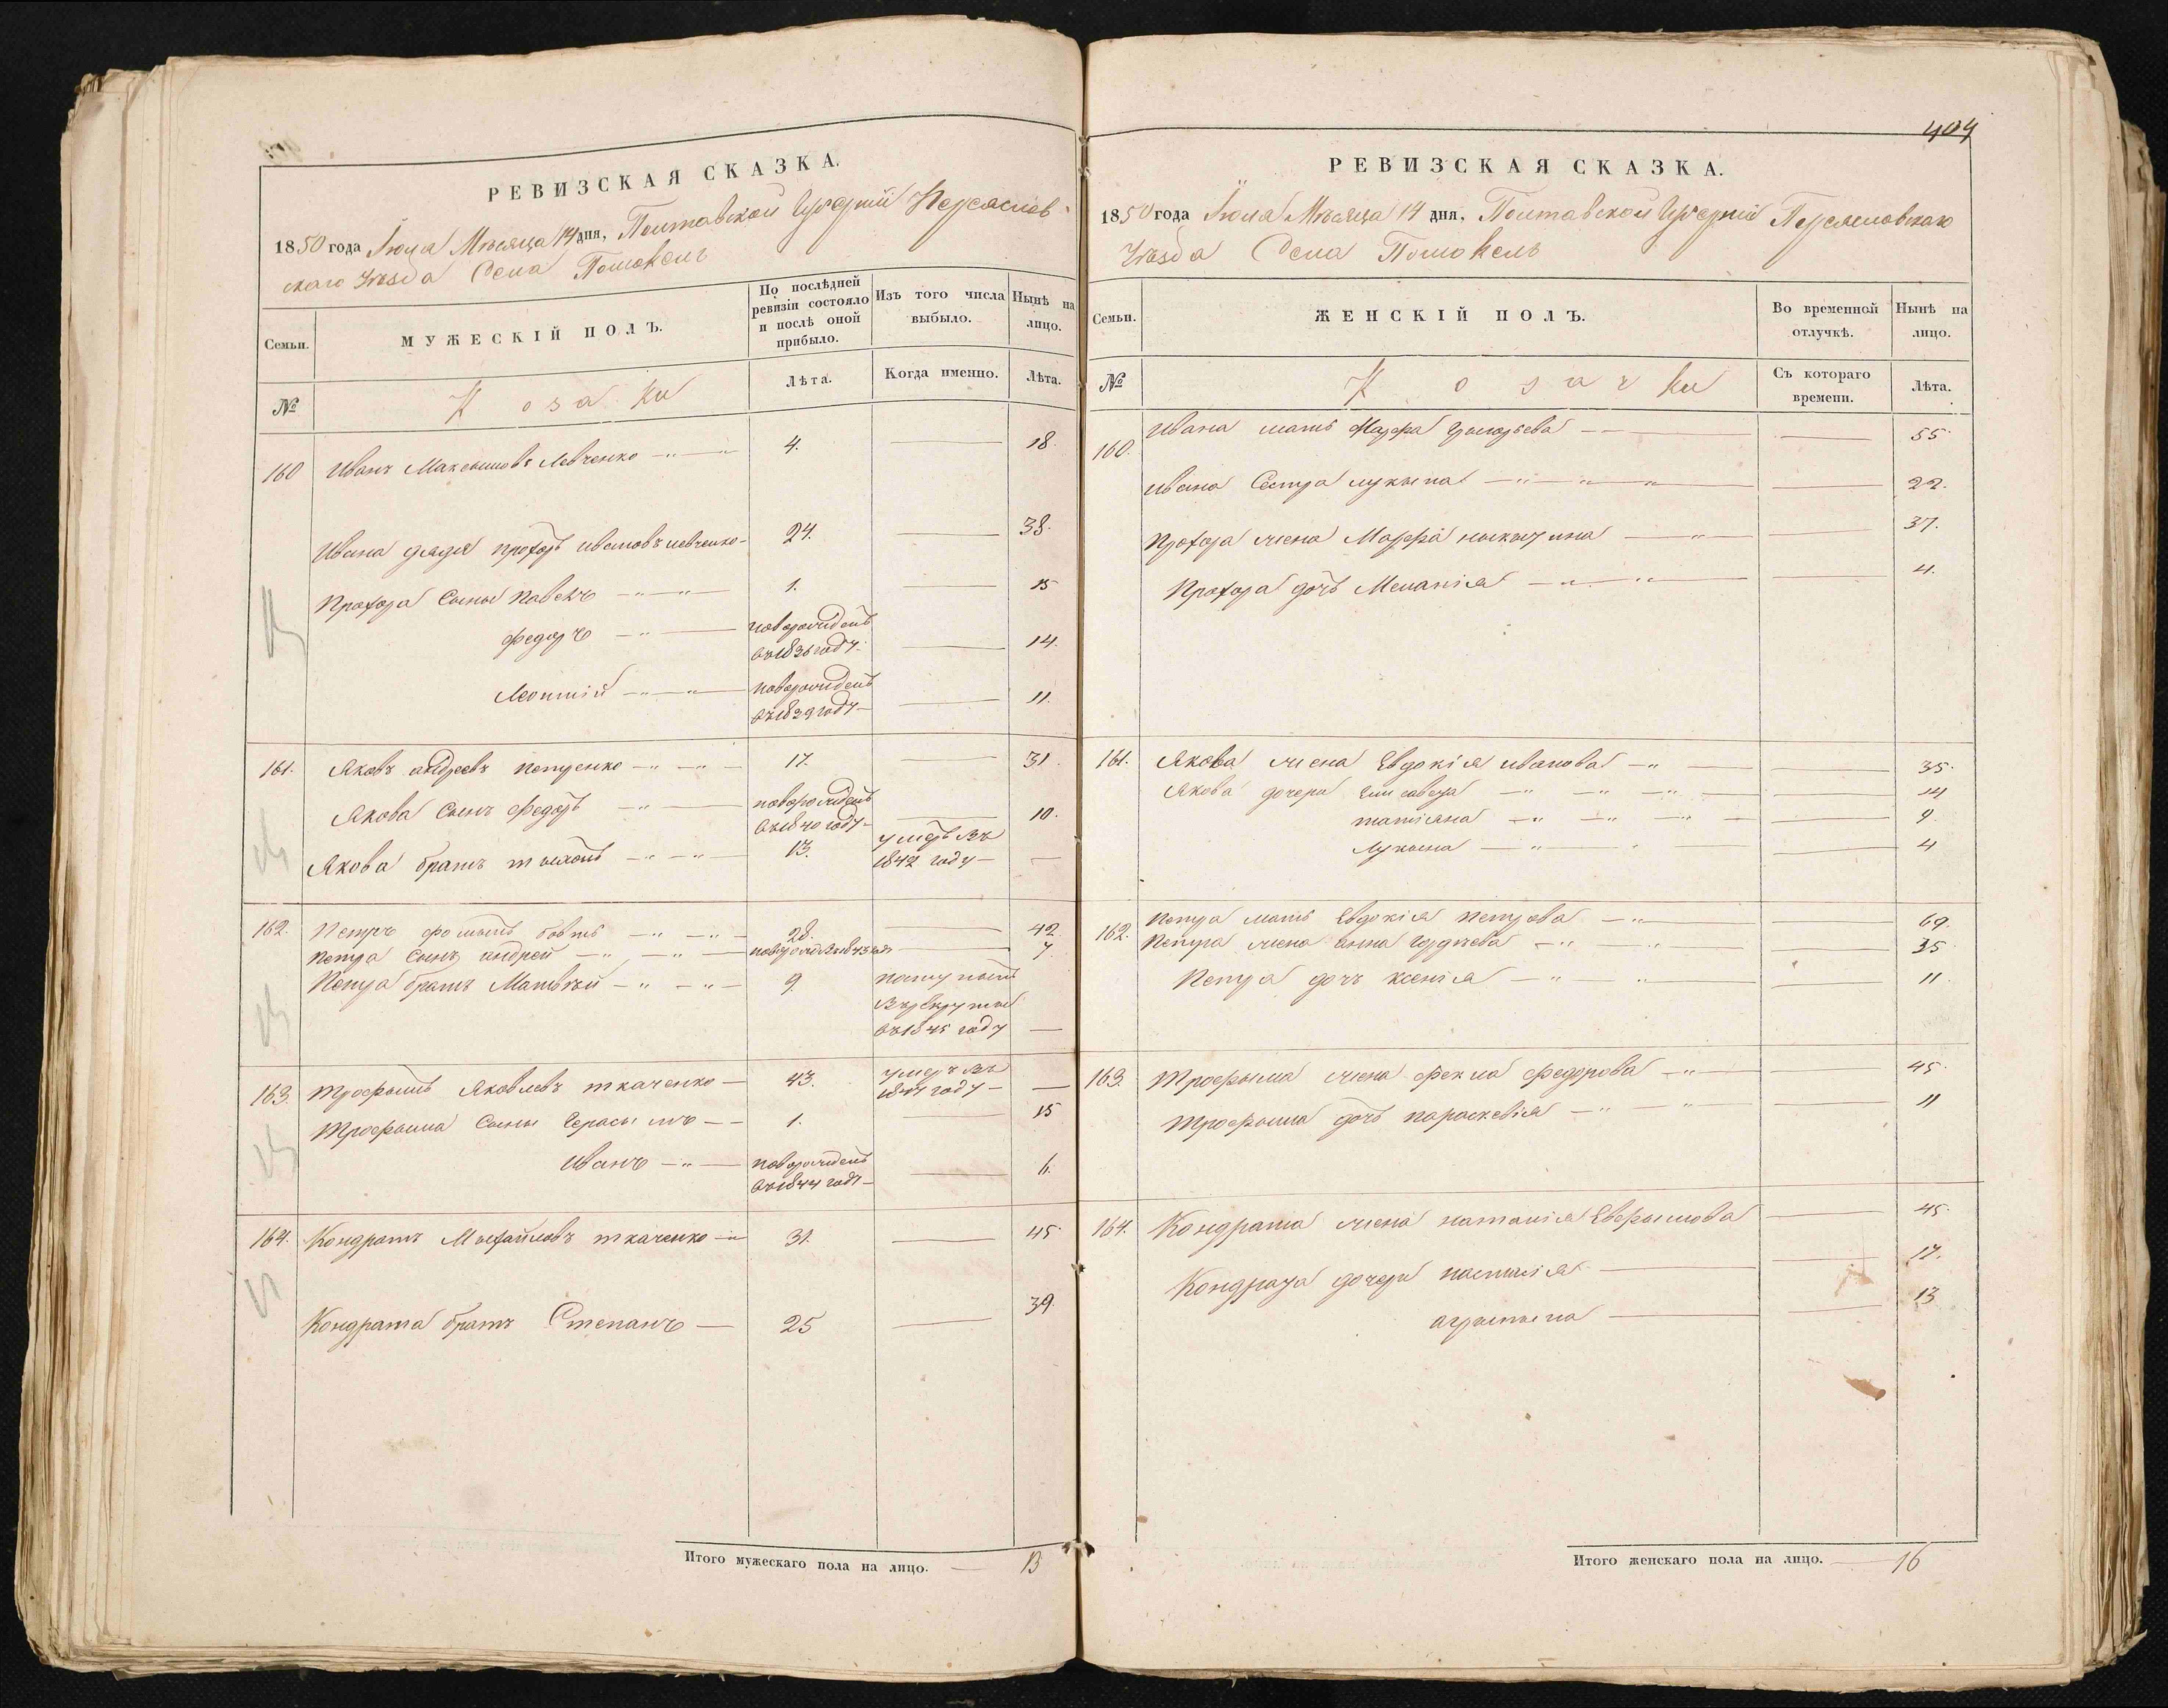 РЕВИЗСКАЯ СКАЗКА.
1850 года Іюля Мѣсяца 14 дня, Полтавской Губерніи Переяслов-
скаго Уѣзда Села Помоклъ
Семьи.
МУЖЕСКІЙ ПОЛЪ.
По послѣдней
ревизіи состояло
и послѣ оной
прибыло.
Изъ того числа
выбыло.
Нынѣ на
лицо.
№
Козаки
Лѣта.
Когда именно.
Лѣта.
160 Иванъ Максимовъ Левченко 4. 18.
Ивана дядя Прохоръ Ивановъ Левченко 24. 38.
Прохора Сыны Павелъ 1. 15
Федоръ новорожденъ 14.
въ 1836 году.
Леонтій новорожденъ 11.
въ 1839 году
161. Яковъ Андреевъ Петренко 17. 31.
Якова Сынъ Федоръ новорожденъ 10.
въ 1840 году
Якова братъ Тихонъ 13. умеръ въ
1842 году
162. Петръ 28. 42.
Петра Сынъ Андрей 7
Петра братъ Матвѣй 9.
въ рекруты
въ 1845 году
163. Трофимъ Яковлевъ Ткаченко 43. умеръ въ
году
Трофима Сыны Герасимъ 1. 15
Иванъ новорожденъ 6.
въ 1844 году
164. Кондратъ Михайловъ Ткаченко 31. 45
Кондрата братъ Степанъ 25 39.
Итого мужескаго пола на лицо. 13
404
РЕВИЗСКАЯ СКАЗКА.
1850 года Іюля Мѣсяца 14 дня, Полтавской Губерніи Переясловскаго
Уѣзда Села Помоклъ
Семьи.
ЖЕНСКІЙ ПОЛЪ.
Во временной
отлучкѣ.
Нынѣ на
лицо.
№
Козачки
Съ котораго
времени.
Лѣта.
160. Ивана мать Марфа Григорьева 55
Ивана Сестра Лукына 22.
Прохора жена Марфа 37.
Прохора дочь Меланія 4.
161. Якова жена Евдокія Иванова 35
Якова дочери Елисавета 14
татіана 9
Лукына 4
162. Петра мать Евдокія Петрова 69.
Петра жена Анна Гордѣева 35
Петра дочь Ксенія 11
163. Трофыма жена Фекла Федорова 45
Трофыма дочь Параскевія 11
164. Кондрата жена Наталія Евфымова 45
Кондрата дочери Настасія 17.
13
Итого женскаго пола на лицо. 16